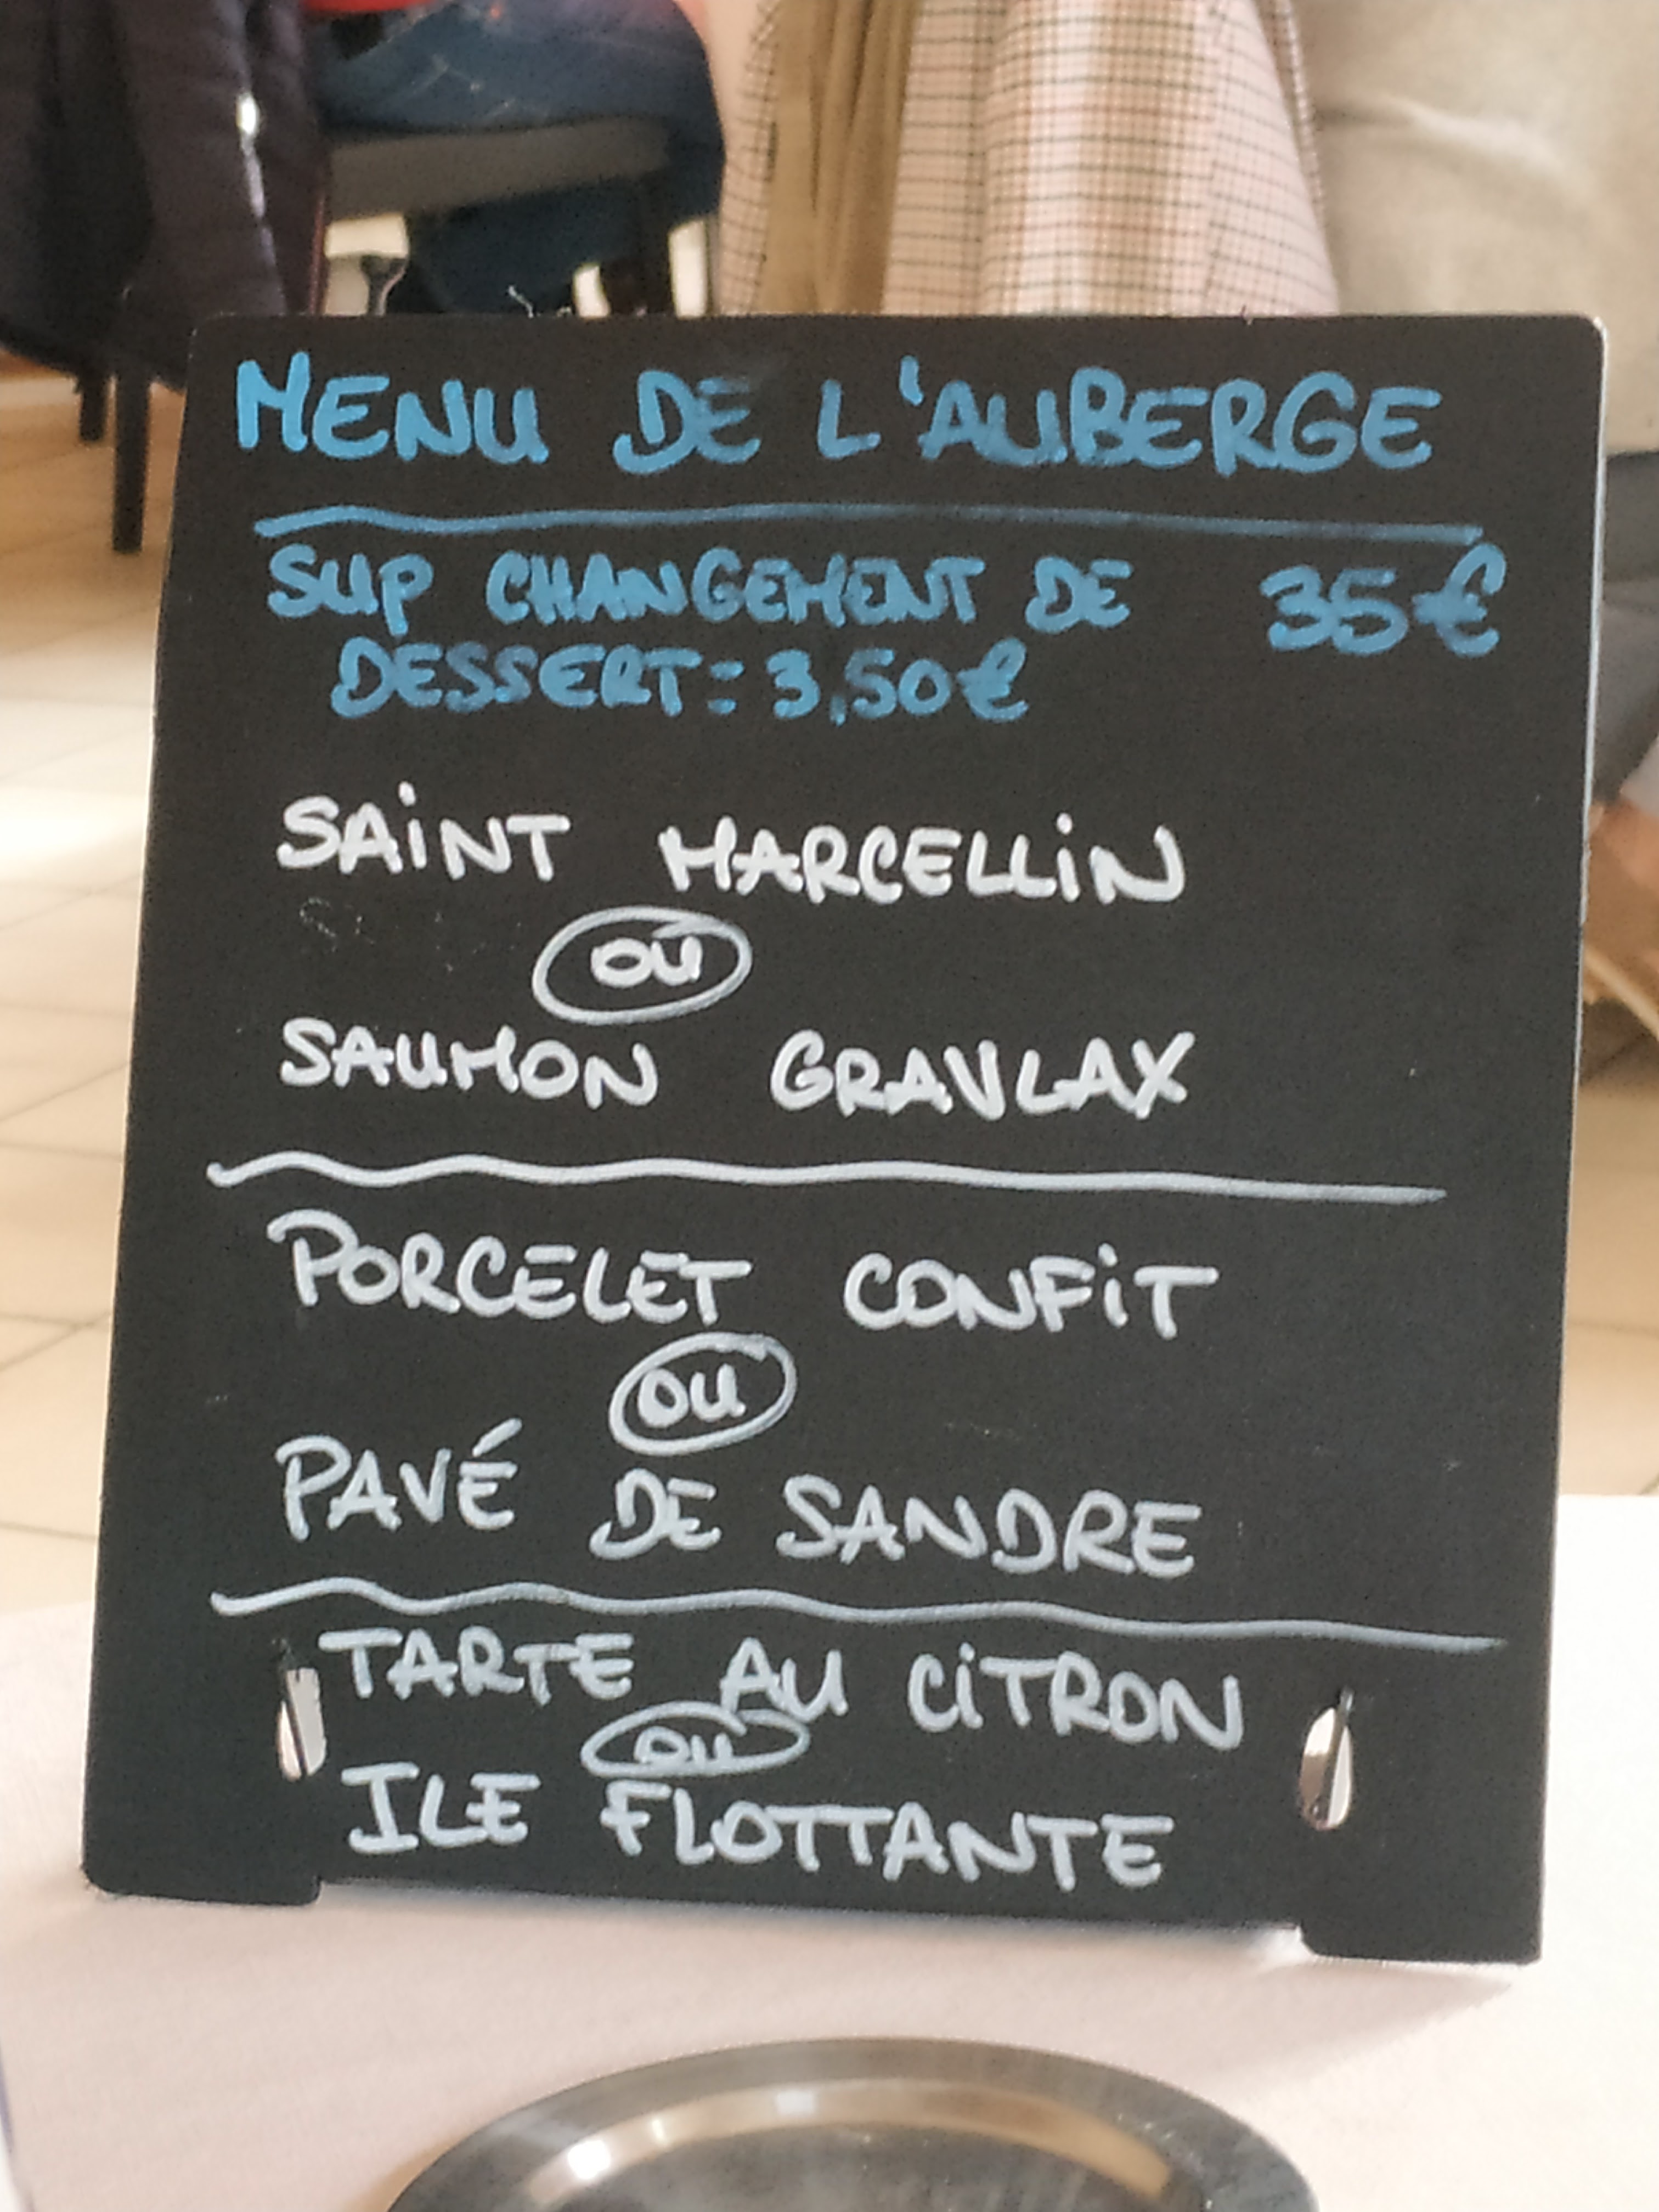 MENU DE L'AUBERGE
SUP CHANGEMENT DE 35€
DESSERT: 3,50€
SAINT MARCELLIN
OU
SAUMON GRAVLAX
PORCELET CONFIT
OU
PAVÉ DE SANDRE
TARTE AU CITRON
OU
ILE FLOTTANTE